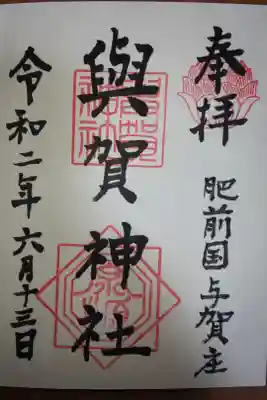 奉拝
肥前国与賀庄
與賀神社
令和二年六月十三日